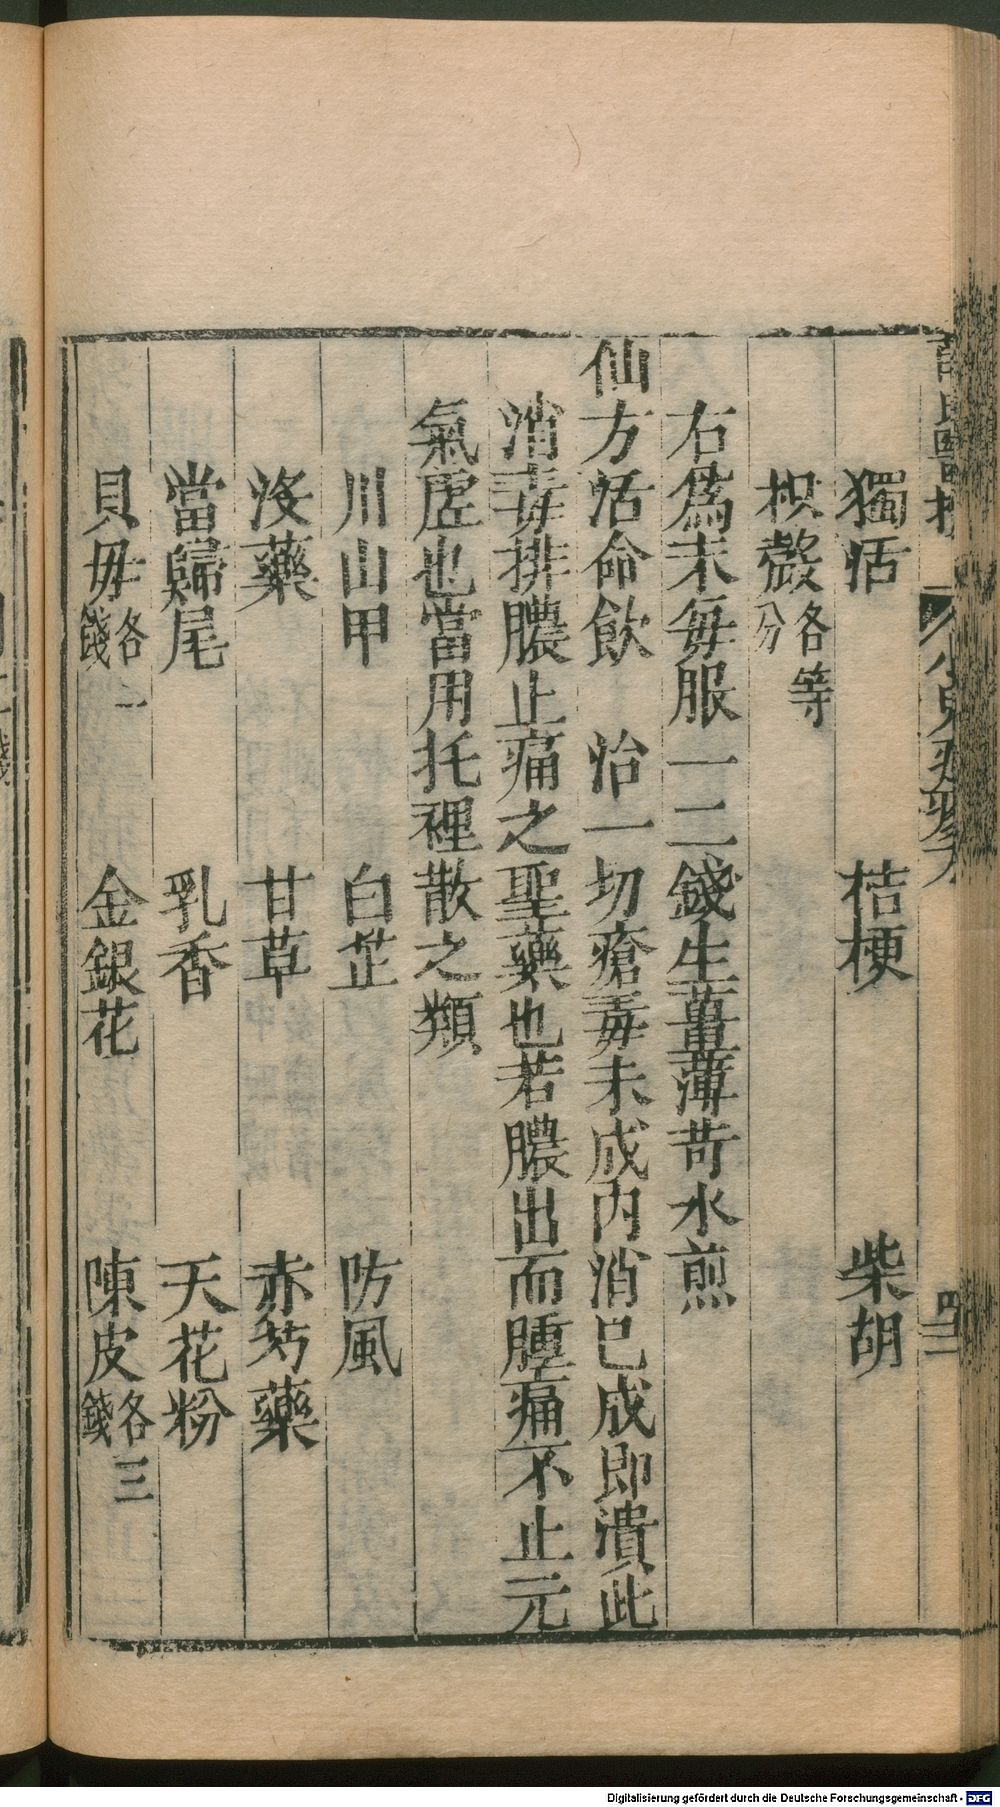 獨活 桔梗 柴胡
枳殼各等分
右爲末每服一二錢生薑薄苛水煎
仙方活命飲 治一切瘡毒未成內消已成即潰此
消毒排膿止痛之聖藥也若膿出而腫痛不止元
氣虛也當用托裡散之類
川山甲 白芷 防風
没藥 甘草 赤芍藥
當歸尾 乳香 天花粉
貝母各一錢 金銀花 陳皮各三錢
Digitalisierung gefördert durch die Deutsche Forschungsgemeinschaft - DFG